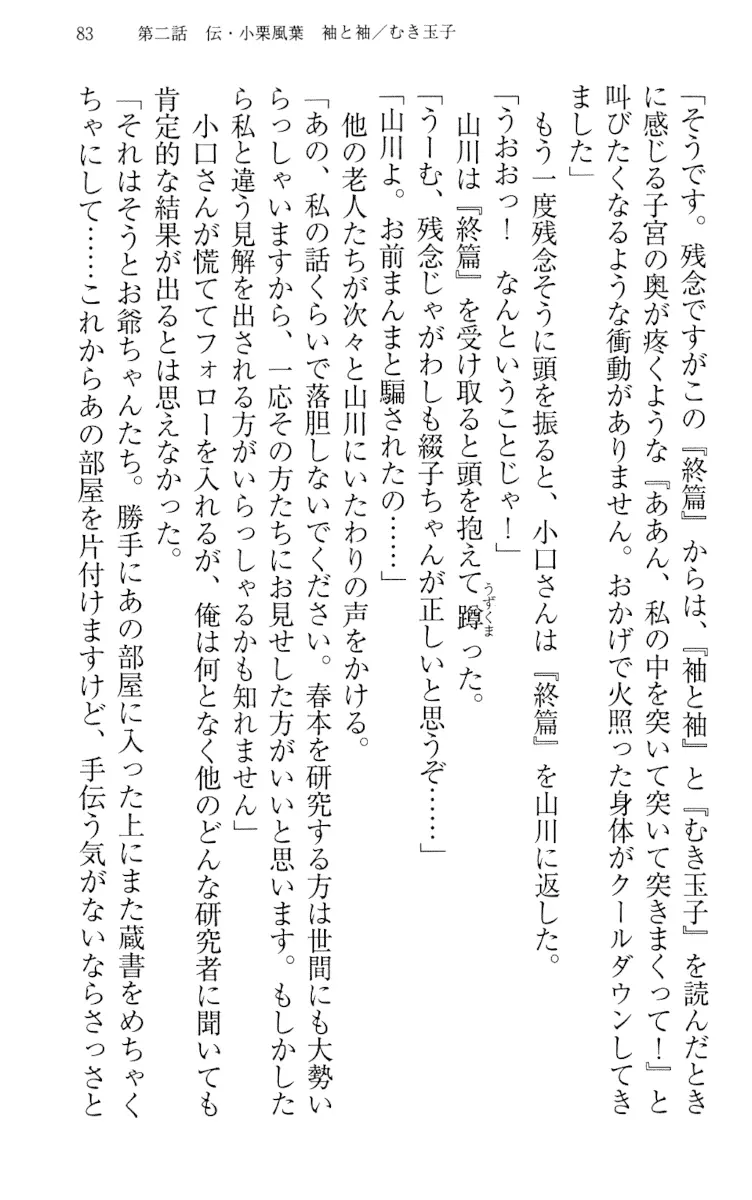 83　第二話　伝・小栗風葉　袖と袖／むき玉子
「そうです。残念ですがこの『終篇』からは、『袖と袖』と『むき玉子』を読んだとき
に感じる子宮の奥が疼くような『ああん、私の中を突いて突いて突きまくって！』と
叫びたくなるような衝動がありません。おかげで火照った身体がクールダウンしてき
ました」
　もう一度残念そうに頭を振ると、小口さんは『終篇』を山川に返した。
「うおおっ！　なんということじゃ！」
　山川は『終篇』を受け取ると頭を抱えて蹲った。
うずくま
「うーむ、残念じゃがわしも綴子ちゃんが正しいと思うぞ……」
「山川よ。お前まんまと騙されたの……」
　他の老人たちが次々と山川にいたわりの声をかける。
「あの、私の話くらいで落胆しないでください。春本を研究する方は世間にも大勢い
らっしゃいますから、一応その方たちにお見せした方がいいと思います。もしかした
ら私と違う見解を出される方がいらっしゃるかも知れません」
　小口さんが慌ててフォローを入れるが、俺は何となく他のどんな研究者に聞いても
肯定的な結果が出るとは思えなかった。
「それはそうとお爺ちゃんたち。勝手にあの部屋に入った上にまた蔵書をめちゃく
ちゃにして……これからあの部屋を片付けますけど、手伝う気がないならさっさと